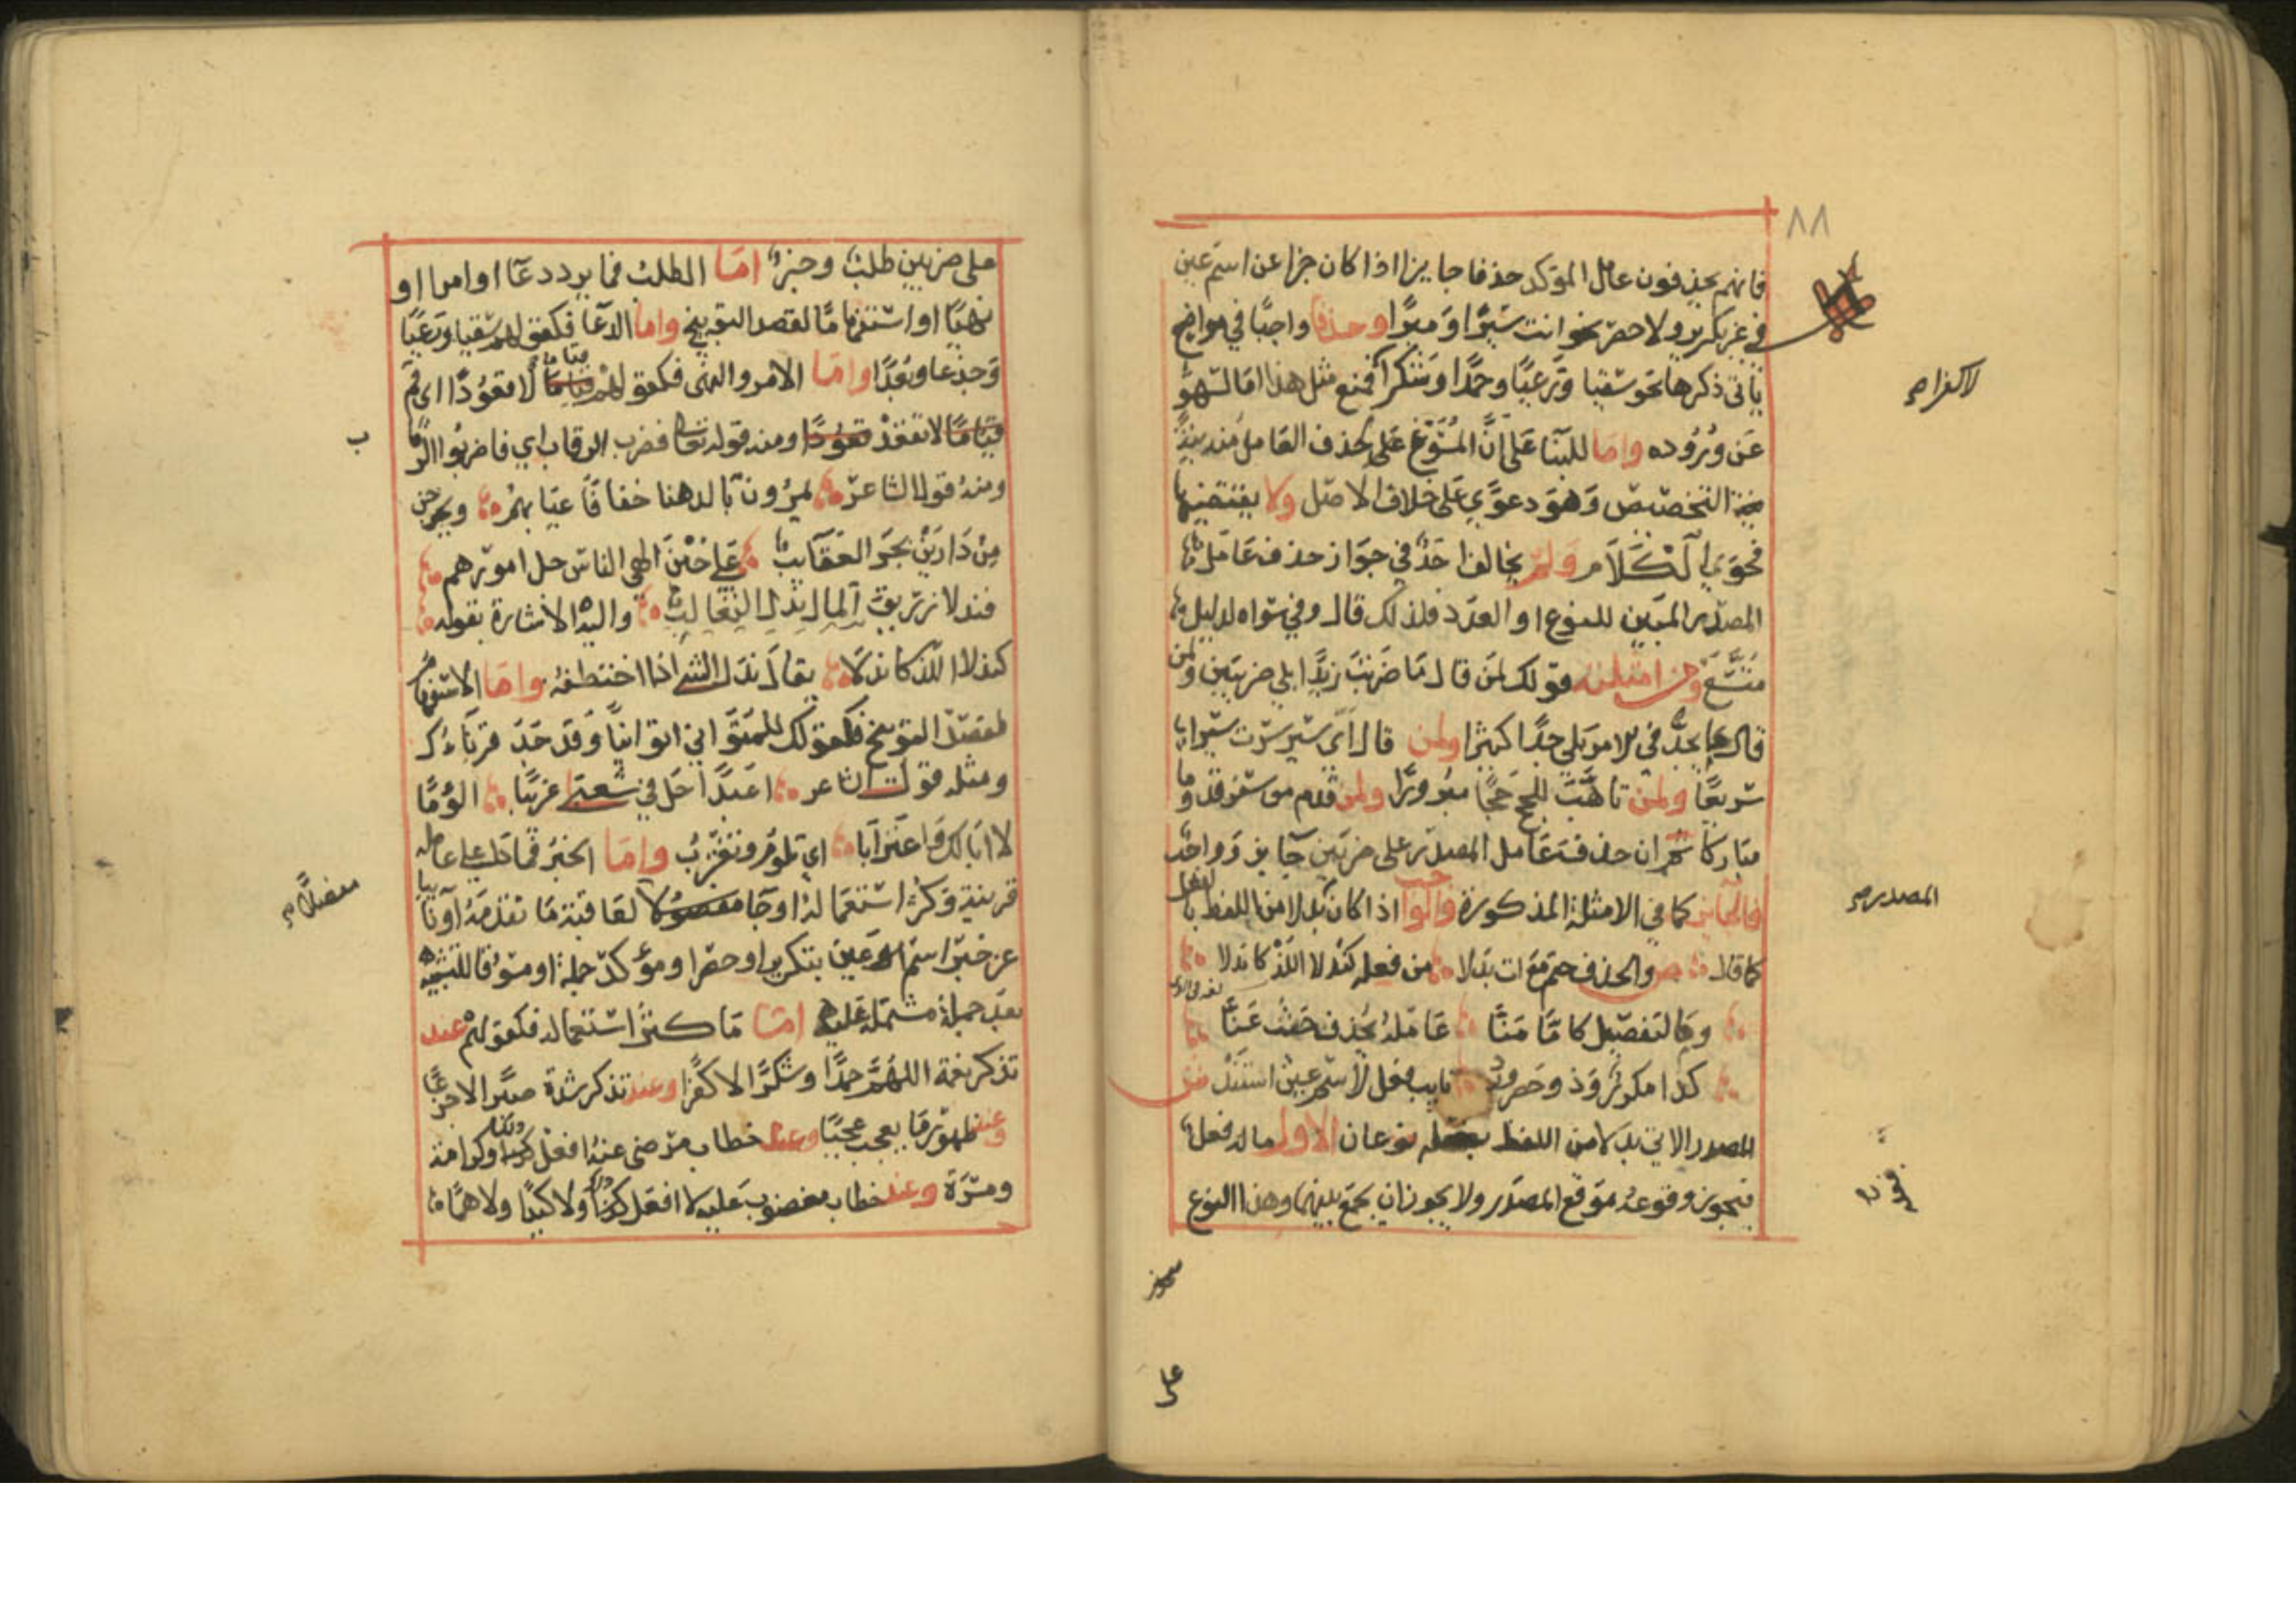 ٨٨
فانهم يحذفون عامل المؤكد حذفا جايزا اذا كان خبرا عن اسم عين
في غير تكرير ولا حصر نحو انت سيرًا وميرًا وحذفا واجبًا في مواضع
ياتي ذكرها نحو سقيا ورعيًا وحمدًا وشكرا فمنع مثل هذا اما لسهو
عن وروده واما للبنا على ان المسوغ على حذف العامل منه نية
التخصيص وهو دعوى على خلاف الاصل ولا يقتضيها
فحوى الكلام ولم يخالف احد في جواز حذف عامل
المصدر المبين للنوع او العدد فلذلك قال وفي سواه لدليل
متسع ومن امثلته قولك لمن قال ما ضربت زيدا بلى ضربتين ولمن
قال ما يجد في الامر بلى جدًا كثيرا ولمن قال اي سير سرت سيرا
سريعًا ولمن تاهب للحج حجًا مبرورًا ولمن قدم من سفر قدوما
مباركا ثم ان حذف عامل المصدر على ضربين جايز وواجب
فالجايز كما في الامثلة المذكورة والواجب اذا كان بدلا من اللفظ بالفعل
كما قال ص والحذف حتم مع ات بدلا من فعله كندلا اللذ كاندلا
وما لتفصيل كاما منّا عامله يحذف حيث عنّا
كذا مكرر وذو حصر ورد نايب فعل لاسم عين استند ش
المصدر الاتي بدلا من اللفظ بفعله نوعان الاول ما له فعل
فيجوز وقوعه موقع المصدر ولا يجوز ان يجمع بينهما وهذا النوع
لا كفرا صح
المصدر صح
على
على ضربين طلب وخبر اما الطلب فما يرد دعا او امرا او
نهيًا او استفهاما لقصد التوبيخ واما الدعا فكقولهم سقيا ورعيًا
وجذعا وبعدًا واما الامر والنهي فكقولهم قياما لا قعودًا اي قم
قيامًا لا تقعد قعودًا ومنه قوله تعالى فضرب الرقاب اي فاضربوا الرقاب
ومنه قول الشاعر يمرون بالدهنا خفافًا عيابهم ويخرجن
من دارين بجر الحقايب على حين الهي الناس جل امورهم
فندلا زريق المال ندل الثعالب واليه الاشارة بقوله
كندلا اللذ كاندلا يقال ندل الشي اذا اختطفه واما الاستفهام
لقصد التوبيخ فكقولك للمتواني اتوانيًا وقد جد قرناؤك
ومثله قول الشاعر اعبدًا حل في شعبى غريبًا الؤمًا
لا ابا لك واغترابا اي تلوم وتغترب واما الخبر فما دل على عامله
قرينة وكثر استعماله او جا مفصلا لعاقبة ما تقدمه او نايبا
عن خبر اسم عين بتكرير او حصر او مؤكد جملة او مسوقا للتشبيه
بعد جملة مشتملة عليه اما ما كثر استعماله فكقولهم عند
تذكر نعمة اللهم حمدًا وشكرًا لا كفرا وعند تذكر شدة صبرًا لا جزعًا
وعند ظهور ما يعجب عجبًا وعند خطاب مرضي عنه افعل ذلك وكرامة
ومسرة وعند خطاب مغضوب عليه لا افعل ذلك ولا كيدًا ولا همًا
ب
مفصلا صح